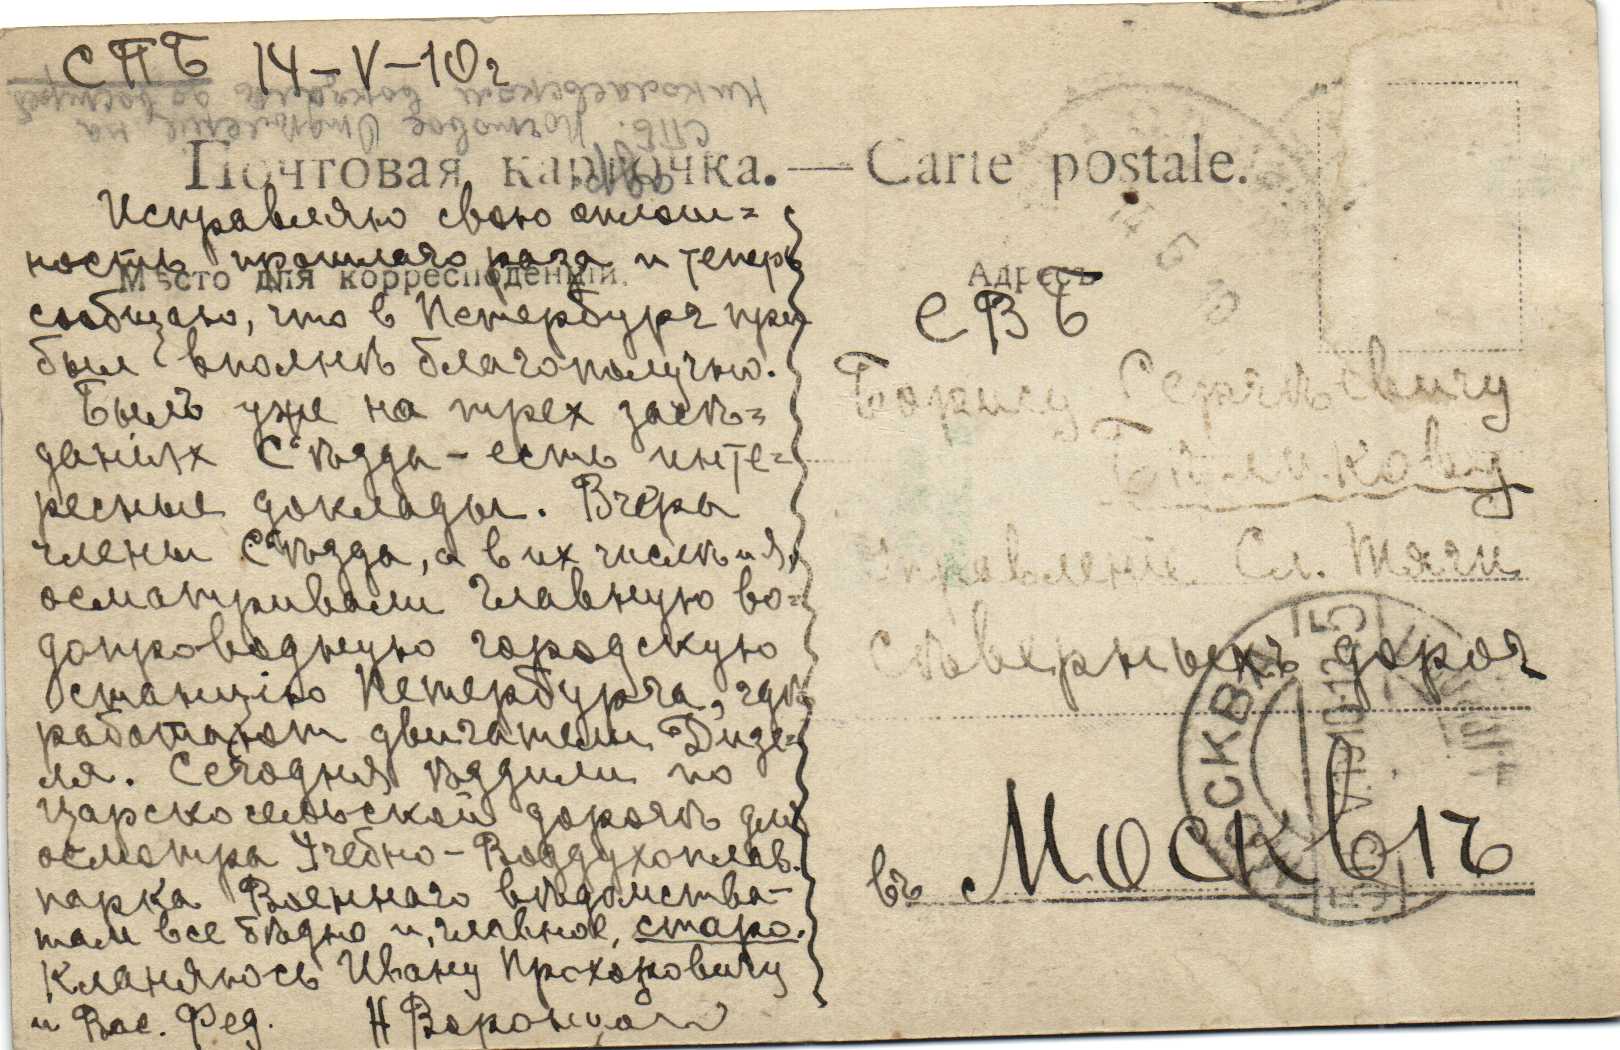 СПБ 14-V-10 г
СПБ. Почтовое Отделение на
Николаевском вокзале до востреб
Почтовая карточка. — Carte postale.
Исправляю свою оплош=
ность прошлаго раза и теперь
Мѣсто для корреспонденціи.
сообщаю, что в Петербург при
был вполнѣ благополучно.
Былъ уже на трех засѣ=
даніях Съѣзда - есть инте=
ресные доклады. Вчера
члены Съѣзда, а в их числѣ и я,
осматривали главную во=
допроводную городскую
станцію Петербурга, гдѣ
работают двигатели Дизе=
ля. Сегодня ѣздили по
Царскосельской дорогѣ для
осмотра Учебно-Воздухоплав.
парка Военнаго вѣдомства-
там все бѣдно и, главное, старо.
Кланяюсь Ивану Прохоровичу
и Вас. Фед. Н Воронцов
Адресъ
ЕВБ
Борису Сергѣевичу
Бѣликову
Управленіе Сл. Тяги
сѣверныхъ дорог
въ Москвѣ
МОСКВА